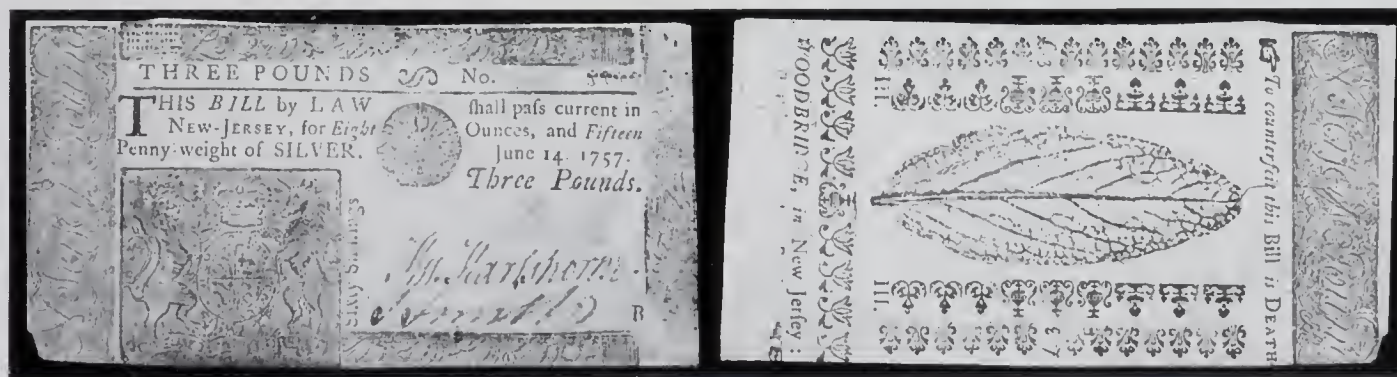 THREE POUNDS No.
THIS BILL by LAW ſhall paſs current in
NEW-JERSEY, for Eight Ounces, and Fifteen
Penny-weight of SILVER. June 14. 1757.
Three Pounds.
Sixty Shillings
B
☞ To counterfeit this Bill is DEATH
III.
III.
WOODBRIDGE, in New Jerſey: